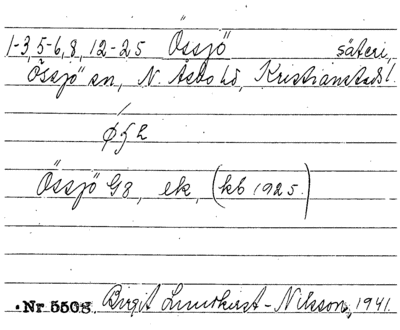 1-3, 5-6, 8, 12-25 Össjö säteri,
Össjö sn, N. Åsbo hd, Kristianstads l.
Össjö G8, ek, (kb 1925.)
Nr. 5508. Birgit Lundkvist-Nilsson, 1941.